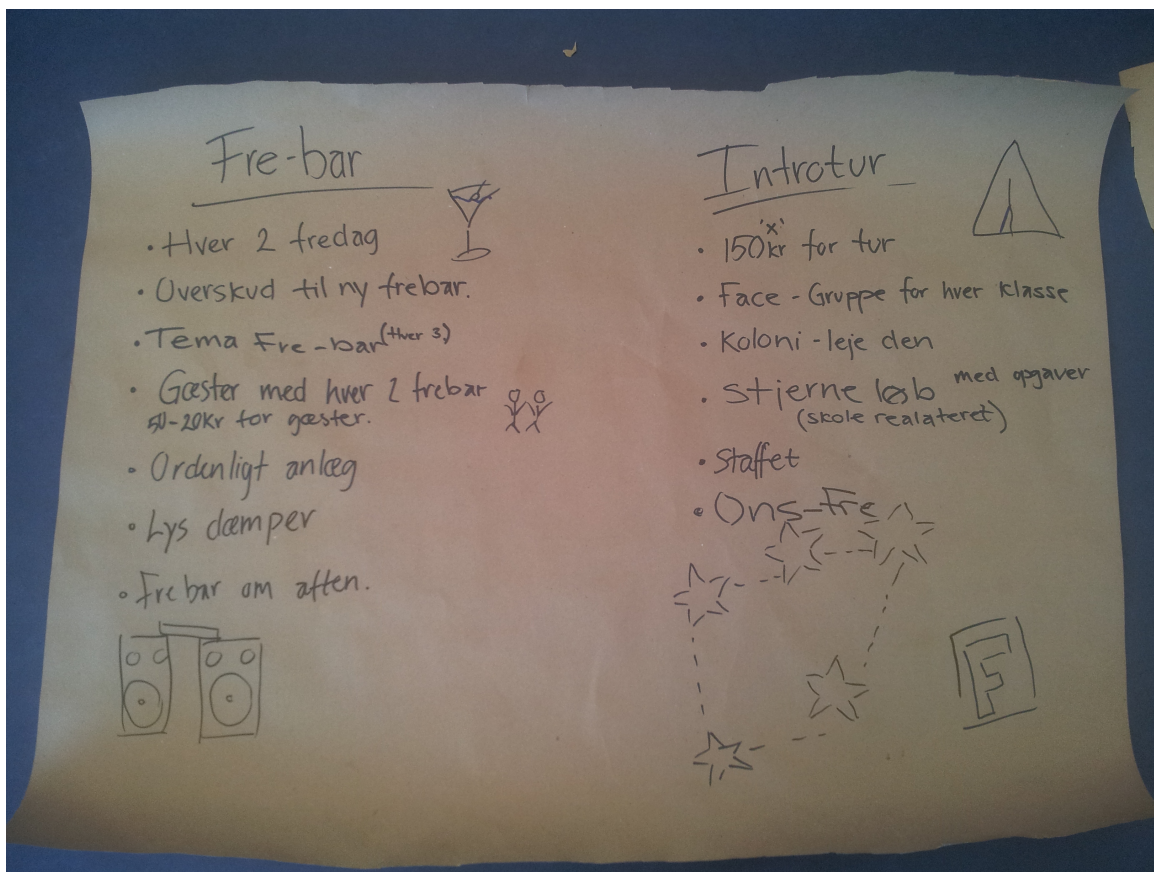 Fre-bar
• Hver 2 fredag
• Overskud til ny frebar.
• Tema Fre-bar (Hver 3)
• Gæster med hver 2 frebar
-20kr for gæster.
• Ordenligt anlæg
• Lys dæmper
• Fre bar om aften.
Introtur
'x'
• 150kr for tur
• Face - Gruppe for hver klasse
• Koloni - leje den
• Stjerne løb med opgaver
(skole realateret)
• Staffet
• Ons-Fre
F